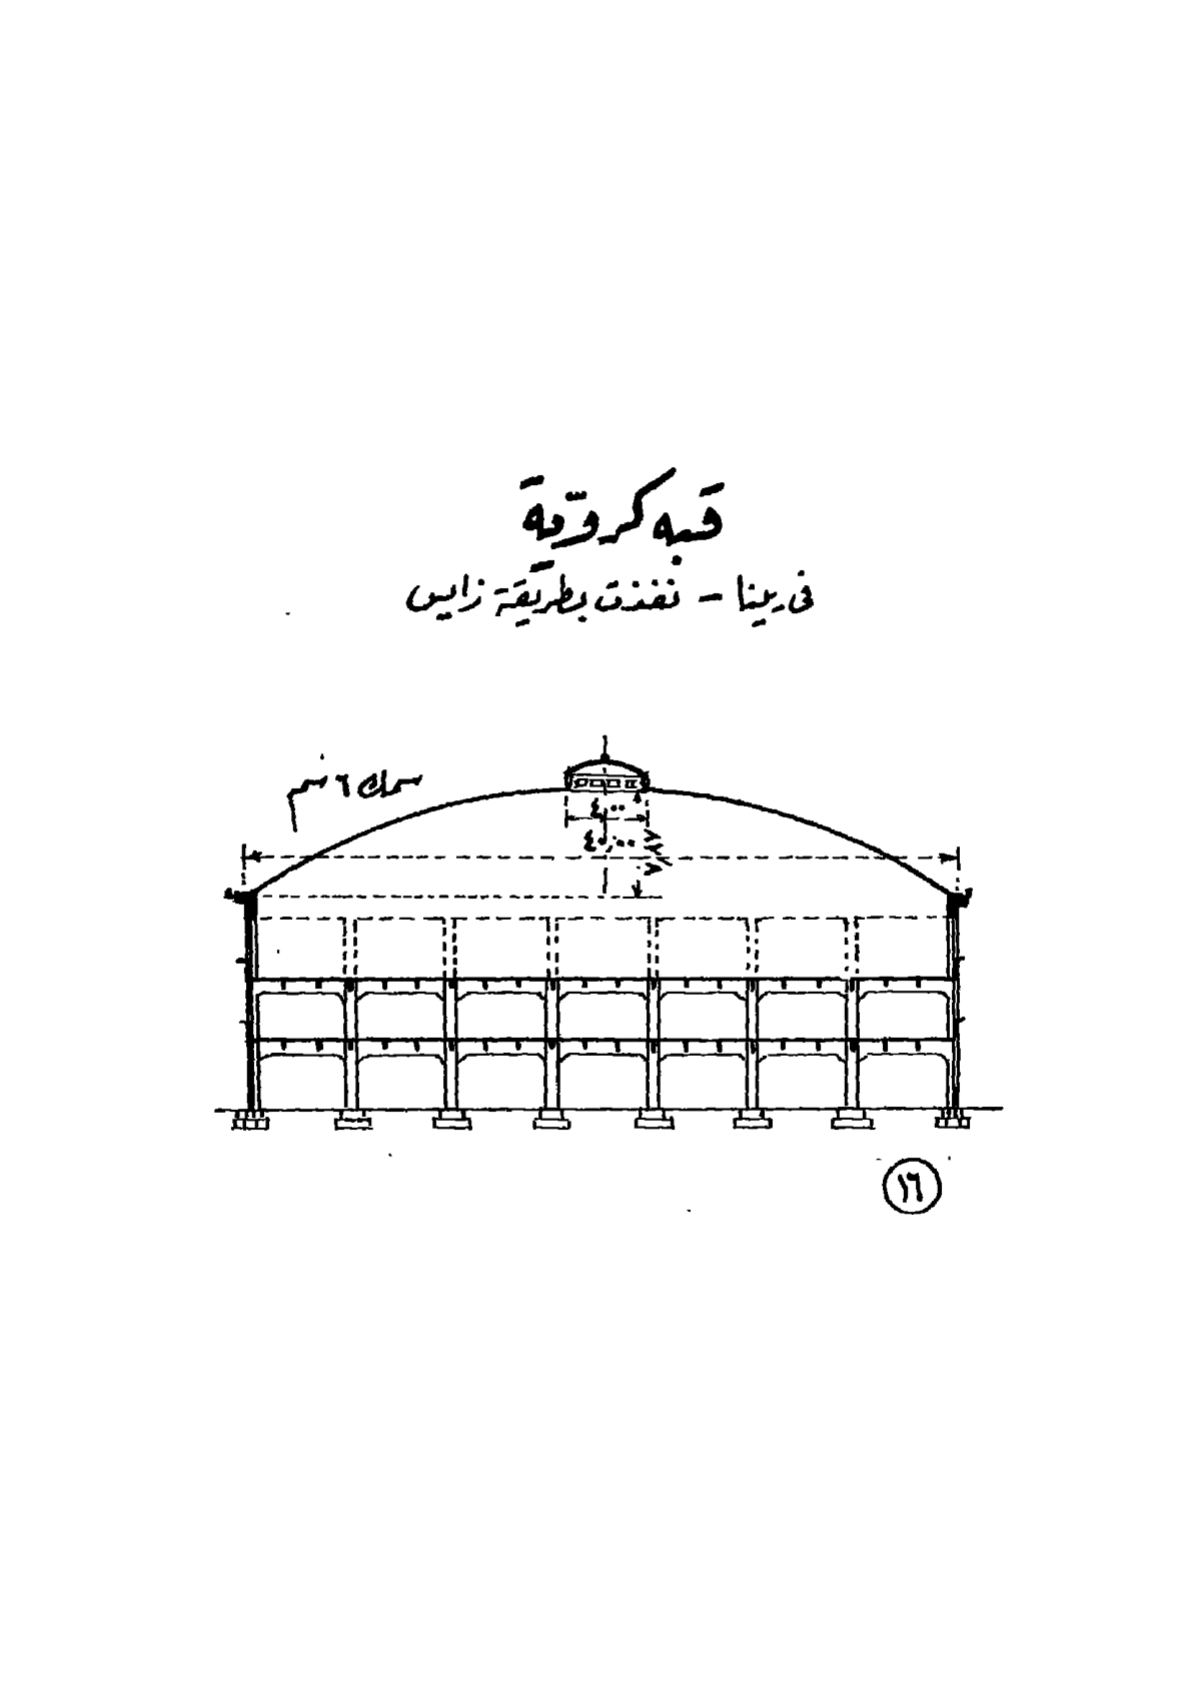 قبه كرويّة
فى يينا - نفذت بطريقة زايس
سمك ٦ سم
٤٫٠٠
٤٠٫٠٠
١٦